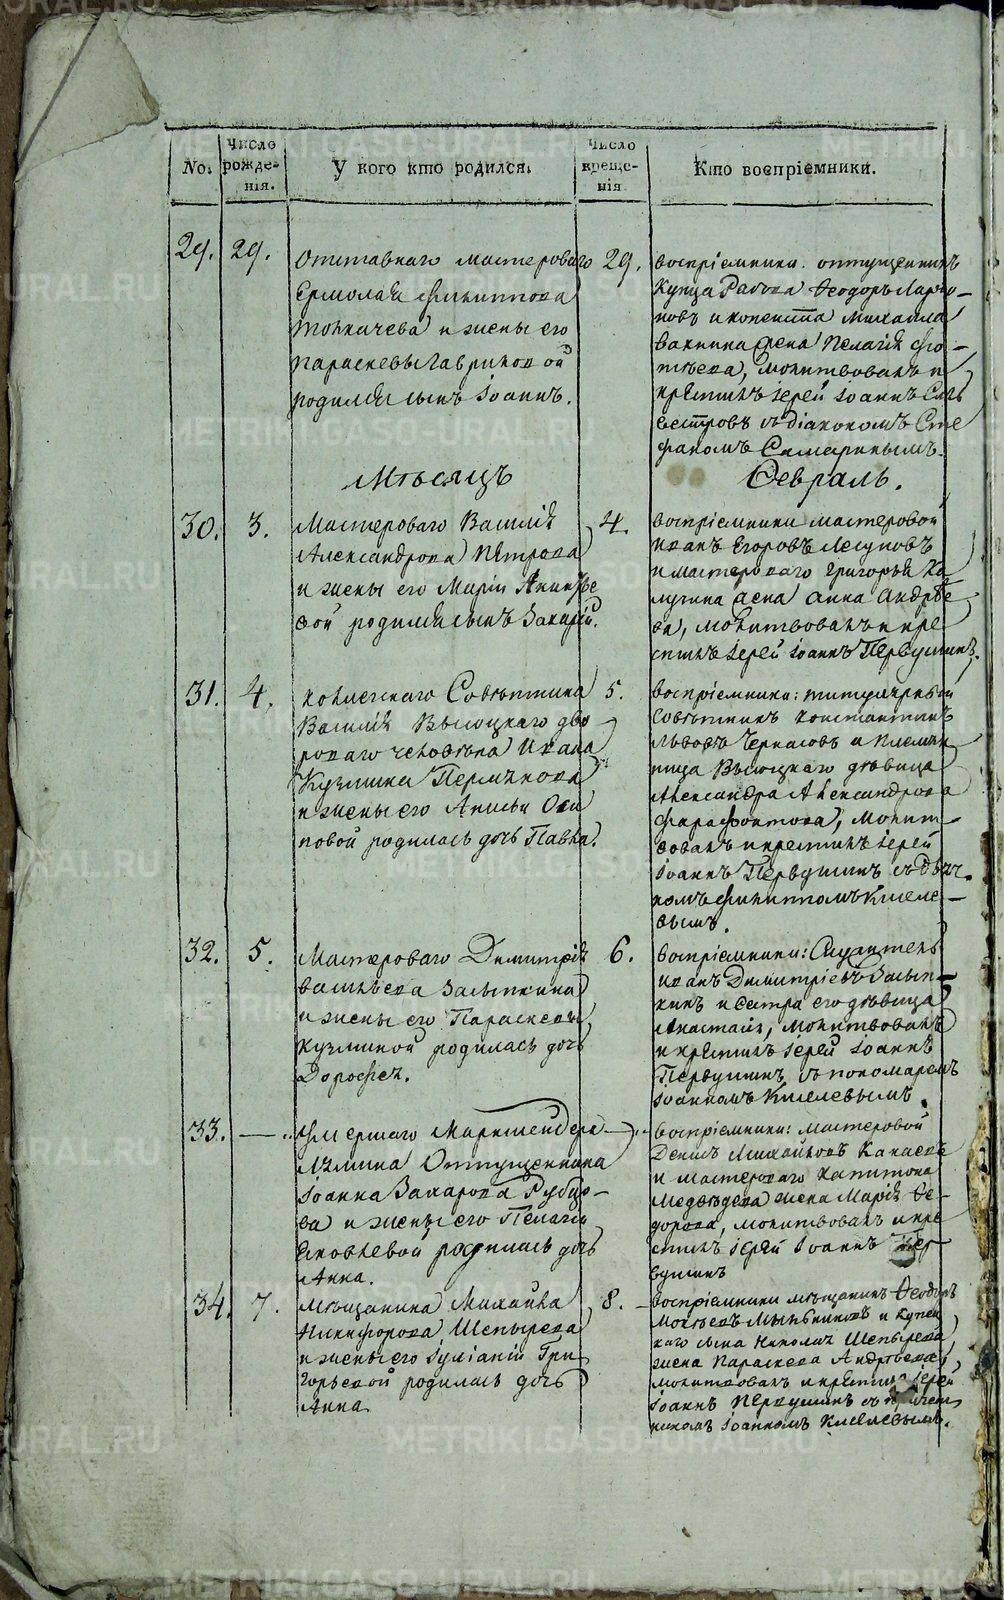 No.
Число рожде-
нія.
У кого кто родился.
Число
креще-
нія
Кто воспріемники.
29.
29.
Отставнаго мастероваго
Ермолая Филиппова
Толкачева и жены его
Параскевы Гавриловой
родился сынъ Іоаннъ.
29.
воспріемники. отпущенникъ
купца Рабова Ѳеодоръ
новъ и кописта Михаила
вакнина жена Пелагія Фо-
тѣева, молитвовалъ и
крѣстилъ іерей Іоаннъ Сель
вестровъ съ діакономъ Сте
фаномъ Самаринымъ.
Мѣсяцъ
Февраль.
30.
3.
Мастероваго Василія
Александрова Пѣтрова
и жены его Маріи Ананье
вой родился сынъ Захарій.
4.
воспріемники мастеровой
Иванъ Егоровъ
и мастероваго Григорья Ка
лугина жена Анна Андрѣе
ва, молитвовалъ и кре
стилъ іерей Іоаннъ Первушинъ.
31.
4.
коллежскаго Совѣтника
Василія Высоцкаго дво
роваго человѣка Ивана
Кузмина Пермякова
и жены его Анисьи Оси
повой родилась дочь Павла.
5.
воспріемники: титулярный
совѣтникъ константинъ
Львовъ Черкасовъ и племян
ница Высоцкаго дѣвица
Александра Александрова
Фарафонтова, молит-
вовалъ и крестилъ іерей
Іоаннъ Первушинъ съ
комъ Филиппомъ Киселе-
вымъ.
32.
5.
Мастероваго Димитрія
васильева Засыпкина
и жены его Параскевы
Кузминой родилась дочь
Дорофея.
6.
воспріемники:
Иванъ Димитріевъ Засып-
кинъ и сестра его дѣвица
Анастасія, молитвовалъ
и крѣстилъ іерей Іоаннъ
Пѣрвушинъ съ пономаремъ
Іоанномъ Киселевымъ.
33.
— "
Умершаго Маркшейдера
Отпущенника
Іоанна Захарова Рубцо-
ва и жены его Пелагіи
Яковлевой родилась дочь
Анна.
— "
воспріемники: мастеровой
Денисъ Михайловъ Канаевъ
и мастероваго капитона
Медвѣдева жена Марія Ѳе-
дорова, молитвовалъ и кре
стилъ іерей Іоаннъ Пер
вушинъ
34.
7.
мѣщанина Михаила
Никифорова Шепырева
и жены его Іуліаніи Гри
горьевой родилась дочь
Анна
8.
воспріемники мѣщанинъ Ѳеодоръ
Мыльниковъ и купец
каго сына Николая Шепырева
жена Параскева Андрѣева,
молитвовалъ и крестилъ іерей
Іоаннъ Первушинъ съ причет
никомъ Іоанномъ Киселевымъ.
METRIKI.GASO-URAL.RU